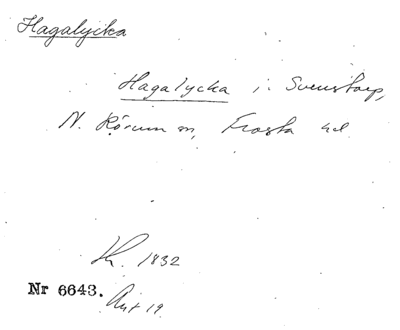 Hagalycka
Hagalycka i Svenstorp,
N. Rörum sn, Frosta hd
Kr. 1832
Nr 6643.
Ant 19